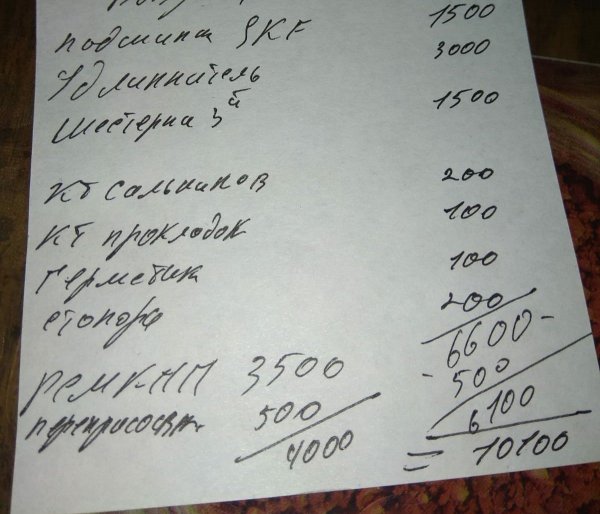 подшипн SKF 1500
Удлиннитель 3000
Шестерня 3й 1500
Кт сальников 200
Кт прокладок 100
Герметик 100
стопора 200
6600-
- 500
6100
Рем КПП 3500
500
4000
= 10100